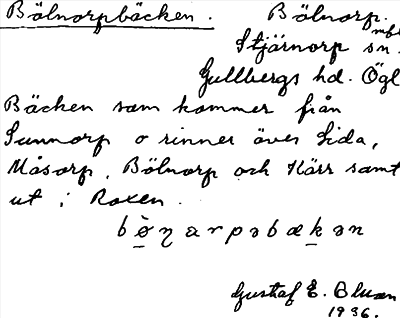 Bölnorpbäcken. Bölnorp.
Stjärnorp sn.
Gullbergs hd. Ögl
Bäcken som kommer från
Sunnorp o rinner över Lida,
Måsorp, Bölnorp och Kärr samt
ut i Roxen.
Gustaf E. Bluan
1936.